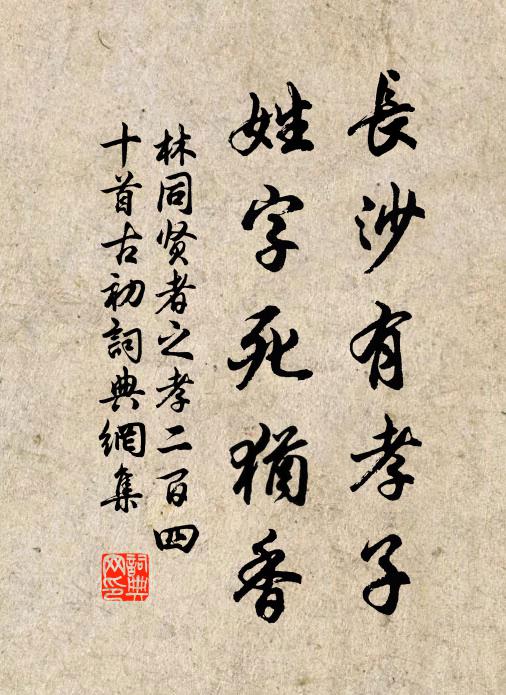 長沙有孝子
姓字死猶香
林同贤者之孝二百四
十首古初詞典網集
詞典网印